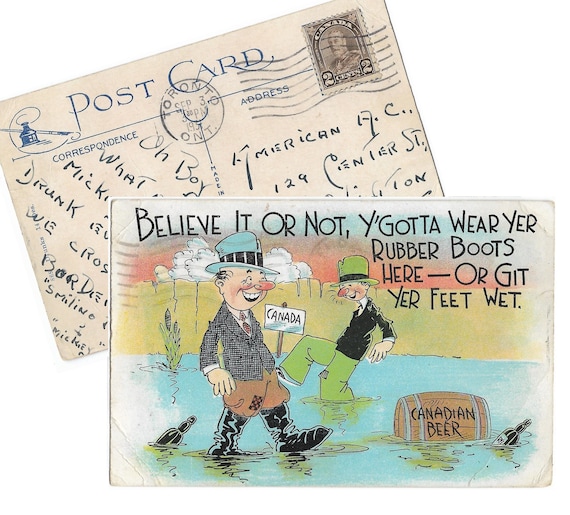 POST CARD
CORRESPONDENCE
ADDRESS
MADE IN
TORONTO
SEP 3
PM
ONT.
CANADA
2 CENTS 2
Oh Bo
What
Micki
Drunk
We Cros
Border
"Smiling
"Mickey
American A.C.,
129 Center St,
BELIEVE IT OR NOT, Y'GOTTA WEAR YER
RUBBER BOOTS
HERE — OR GIT
YER FEET WET.
CANADA
CANADIAN
BEER